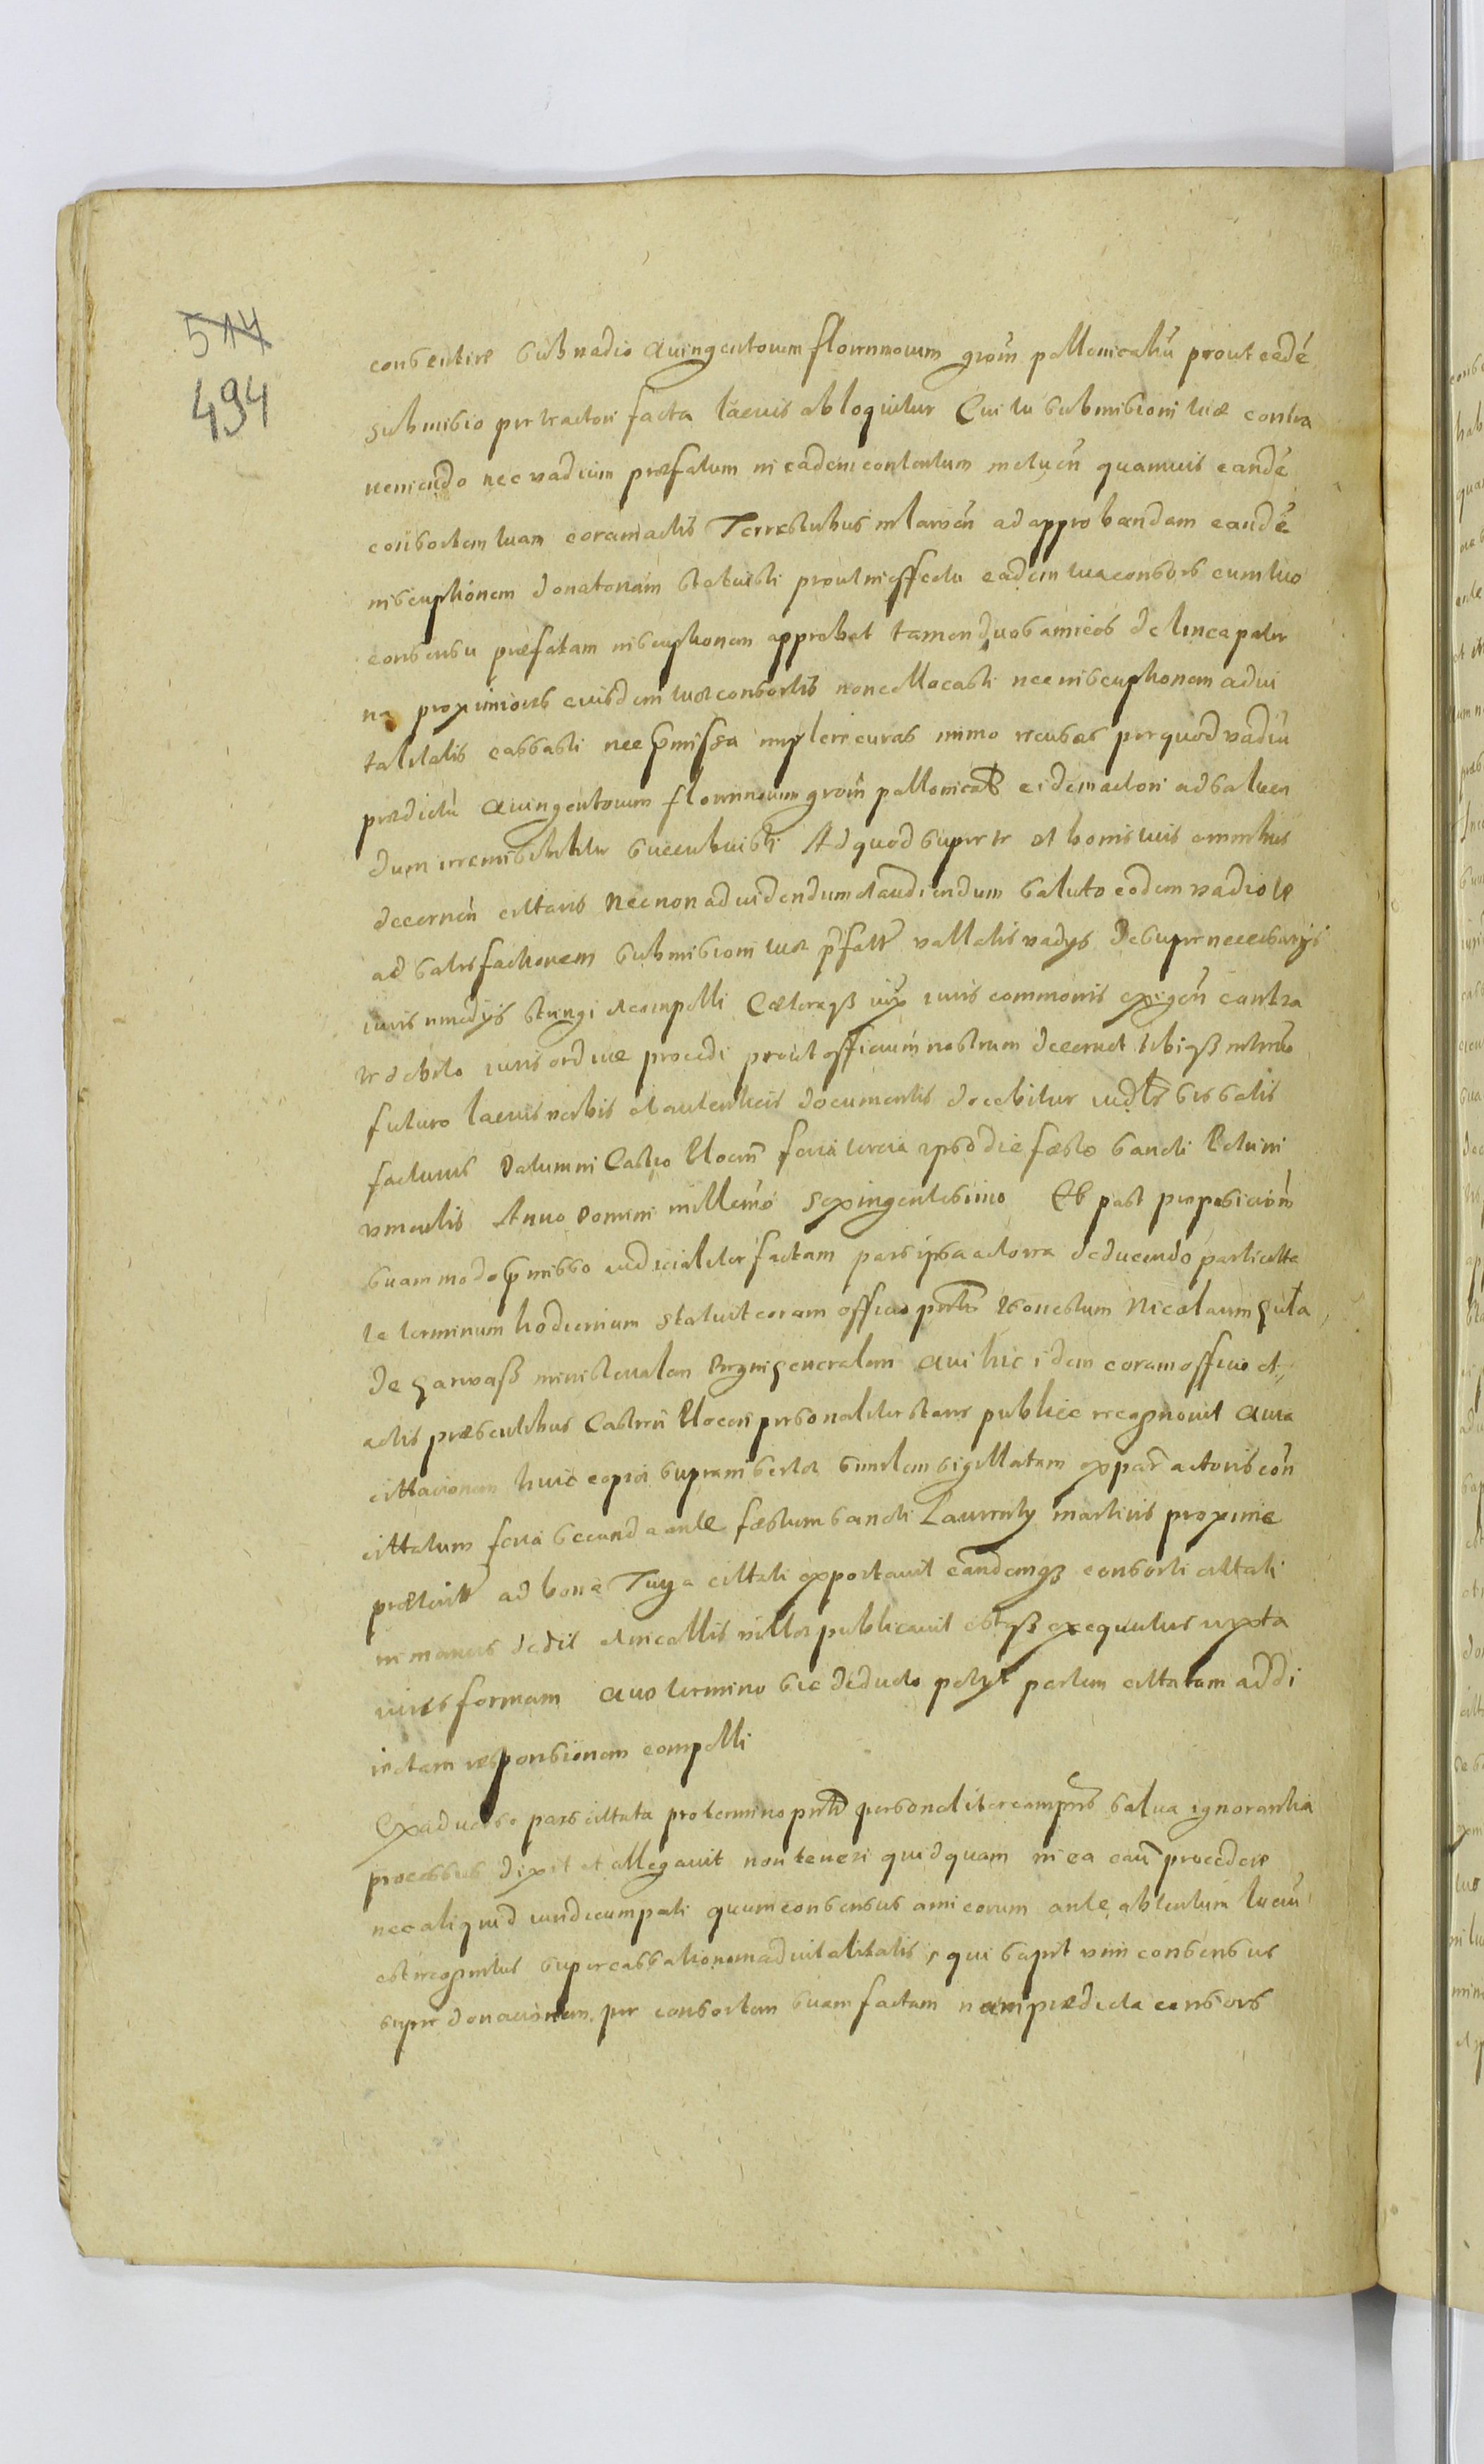 514
494
consentire sub vadio Quingentorum florinnorum groin̄ pollonicaliū prout eadē
submissio per te actori facta lacius obloquitur Qui tu submissioni tuæ contra
veniendo nec vadium præfatum in eadem contentum metuen̄ quamuis eandē
consortem tuam coram actis Terrestribus ad approbandam eandē
inscriptionem donatoriam statuisti prout in effectu eadem tua consors cum tuo
consensu præfatam inscriptionem approbat tamen duos amicos de linea pater
na proximiores eiusdem tuæ consortis non collocasti nec inscriptionem adui
talitatis cassasti nec p̄missa implere curas immo recusas per quod vadiū
prædictū Quingentorum florinnorum groin̄ pollonical eidem actori ad soluen
dum irremissibiliter succubuisti Ad quod super te et bonis tuis omnibus
decernen̄ cittaris Nec non ad videndum et audiendum soluto eodem vadio te
ad satisfactionem submissioni tuæ p̄fatæ vallatis vadys desuper necessarys
iuris remedys stringi et compelli Cæteraqȝ iux iuris commonis exigen̄ contra
te debito iuris ordine procedi prout officium nostrum decernet tibiqȝ in termino
futuro lacius verbis et autenticis documentis docebitur iudlr sis satis
facturus Datum in Castro feria tercia ipso die festo sancti Petri in
vinculis Anno Domini millemo sexingentesimo Et post propositiom̄
suam modo p̄misso iudicialiter factam pars ipsa actorea deducendo part citta
te terminum hodiernum statuit coram officio pnti Honestum Nicolaum
de ministerialem Regni generalem Qui hic idem coram officio et
actis præsentibus Castren̄ personaliter stans publice recognouit Quia
cittacionem huic copiæ supra insertæ similem sigillatam ex par actoris con̄
cittatum feria secunda ante festum sancti Laurenty martiris proxime
præterit ad bona cittati exportauit eandemqȝ consorti cittati
in manus dedit et incollis villæ publicauit estqȝ exequutus iuxta
iuris formam Quo termino sic deducto petyt partem cittatam ad di
rectam responsionem compelli
Ex aduerso pars cittata pro termino pnti personaliter comprns salua ignorantia
processus dixit et allegauit non teneri quidquam in ea cau procedere
nec aliquid iuridicum pati quum consensus amicorum ante obtentum
est requisitus super cassationem aduitalitatis, qui sapit vim consensus
super donacionem per consortem suam factam nam prædicta consors